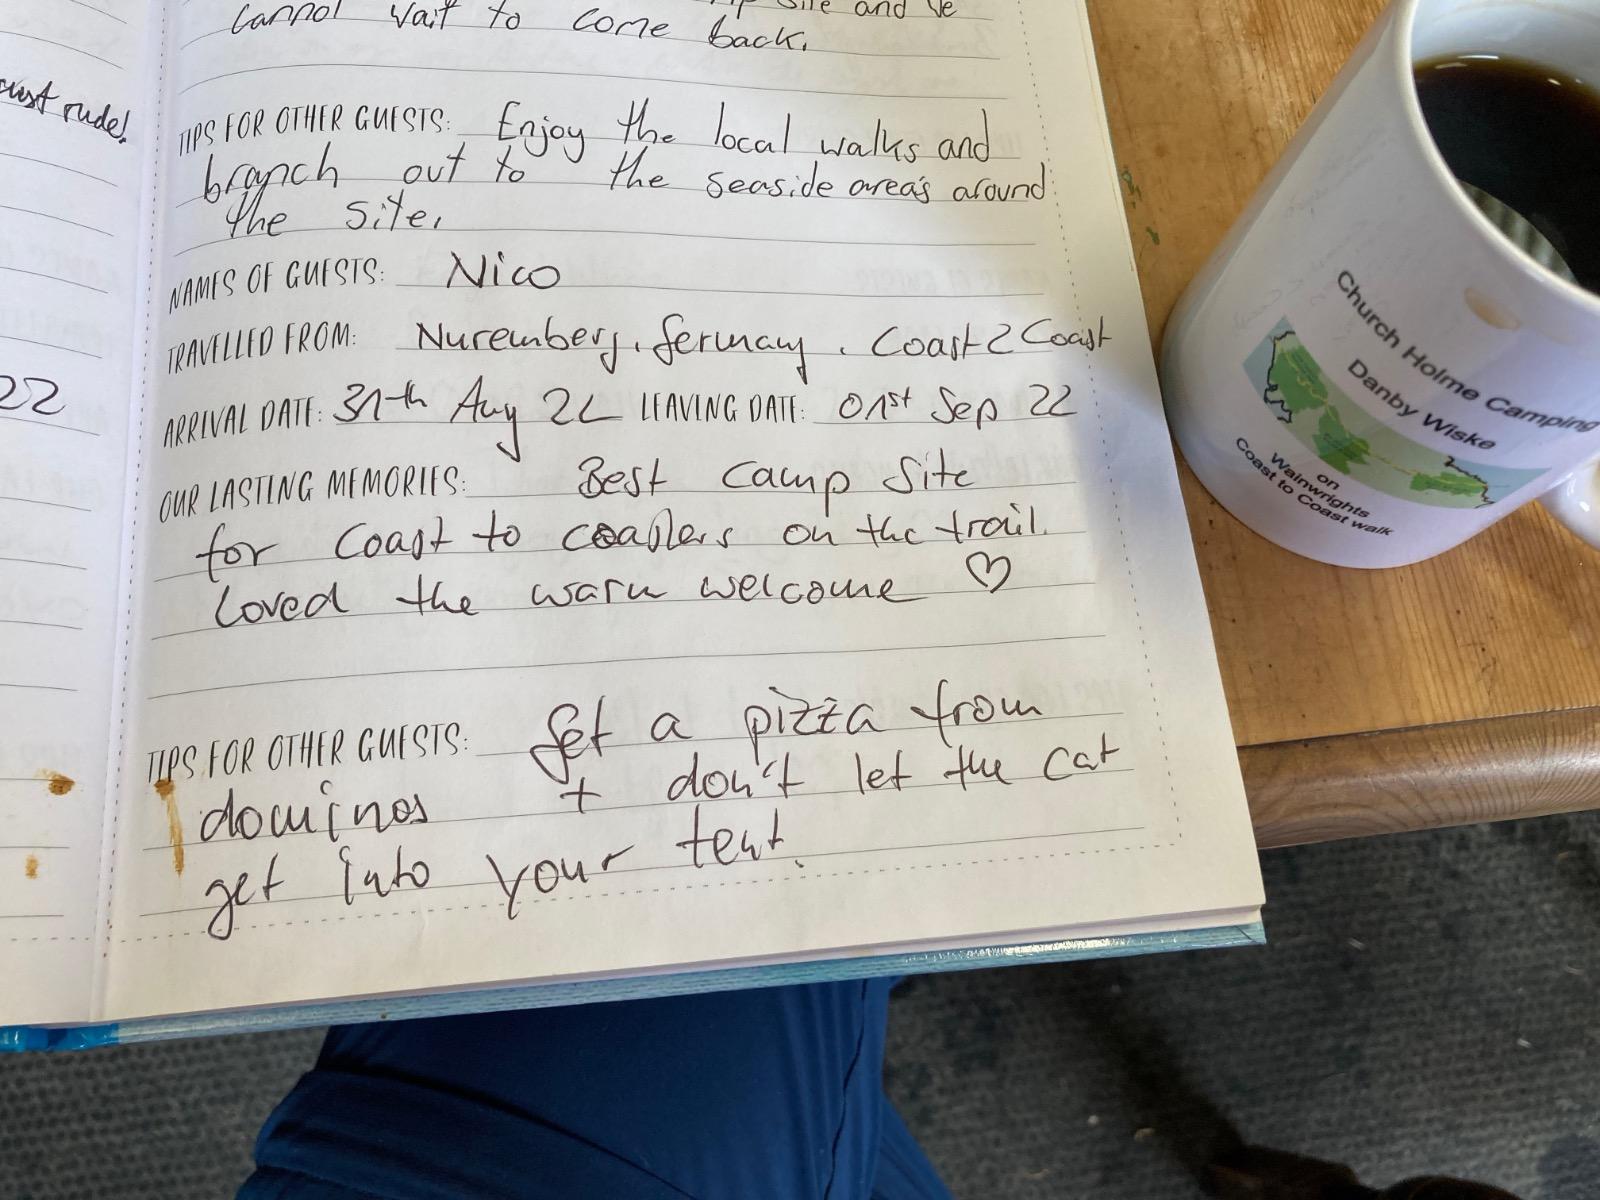 site and we
cannot wait to come back.
just rude!
TIPS FOR OTHER GUESTS: Enjoy the local walks and
branch out to the seaside area's around
the site.
NAMES OF GUESTS: Nico
TRAVELLED FROM: Nuremberg, Germany, Coast2Coast
22
ARRIVAL DATE: 31th Aug 22 LEAVING DATE: 01st Sep 22
OUR LASTING MEMORIES: Best Camp Site
for Coast to coasters on the trail.
Loved the warm welcome ♡
TIPS FOR OTHER GUESTS: Get a pizza from
dominos + don't let the cat
get into your tent.
Church Holme Camping
Danby Wiske
on
Wainwrights
Coast to Coast walk